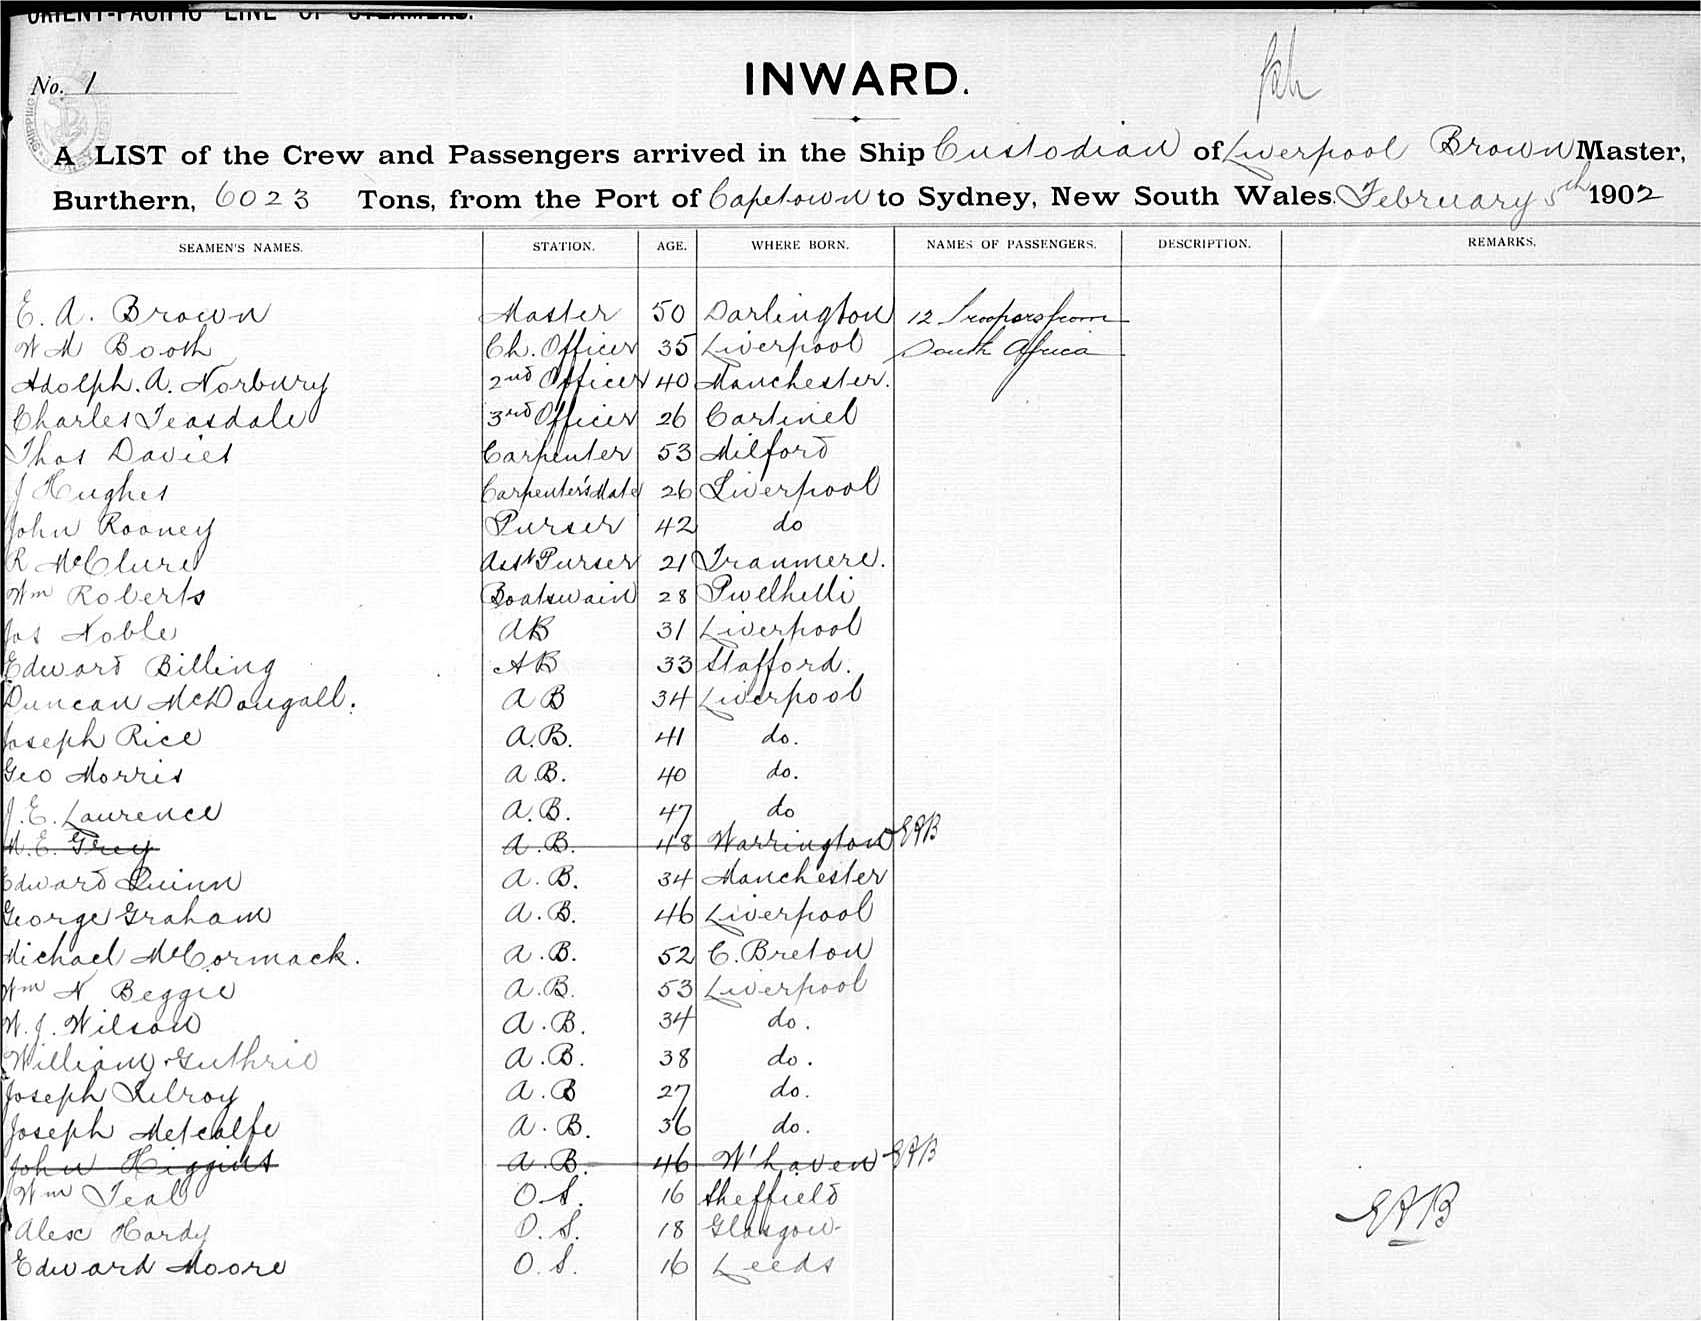 ORIENT-PACIFIC LINE OF STEAMERS.
No. 1
INWARD.
A LIST of the Crew and Passengers arrived in the Ship Custodian of Liverpool Brown Master,
Burthern, 6023 Tons, from the Port of Capetown to Sydney, New South Wales. February 5th 1902
SEAMEN'S NAMES. STATION. AGE. WHERE BORN. NAMES OF PASSENGERS. DESCRIPTION. REMARKS.
E. A. Brown Master 50 Darlington 12 Troopers from
W M Booth Ch. Officer 35 Liverpool South Africa
Adolph. A. Norbury 2nd Officer 40 Manchester.
Charles Teasdale 3rd Officer 26 Cartmel
Thos Davies Carpenter 53 Milford
J Hughes Carpenter's Mate 26 Liverpool
John Rooney Purser 42 do
R McClure Asst Purser 21 Tranmere.
Wm Roberts Boatswain 28 Pwelhelli
Jos Noble AB 31 Liverpool
Edward Billing AB 33 Stafford.
Duncan McDougall. A B 34 Liverpool
Joseph Rice A.B. 41 do.
Geo Morris A.B. 40 do.
J. E. Laurence A.B. 47 do
E. Grey A.B. 48 Warrington EAB
Edward Quinn A.B. 34 Manchester
George Graham A.B. 46 Liverpool
Michael McCormack. A.B. 52 C. Breton
Wm N Beggie A.B. 53 Liverpool
W. J. Wilson A.B. 34 do.
William Guthrie A.B. 38 do.
Joseph Kilroy A.B 27 do.
Joseph Metcalfe A.B. 36 do.
John Higgins A.B. 46 W'haven EAB
Wm Teal O.S. 16 Sheffield
Alex Hardy O.S. 18 Glasgow
EAB
Edward Moore O.S. 16 Leeds